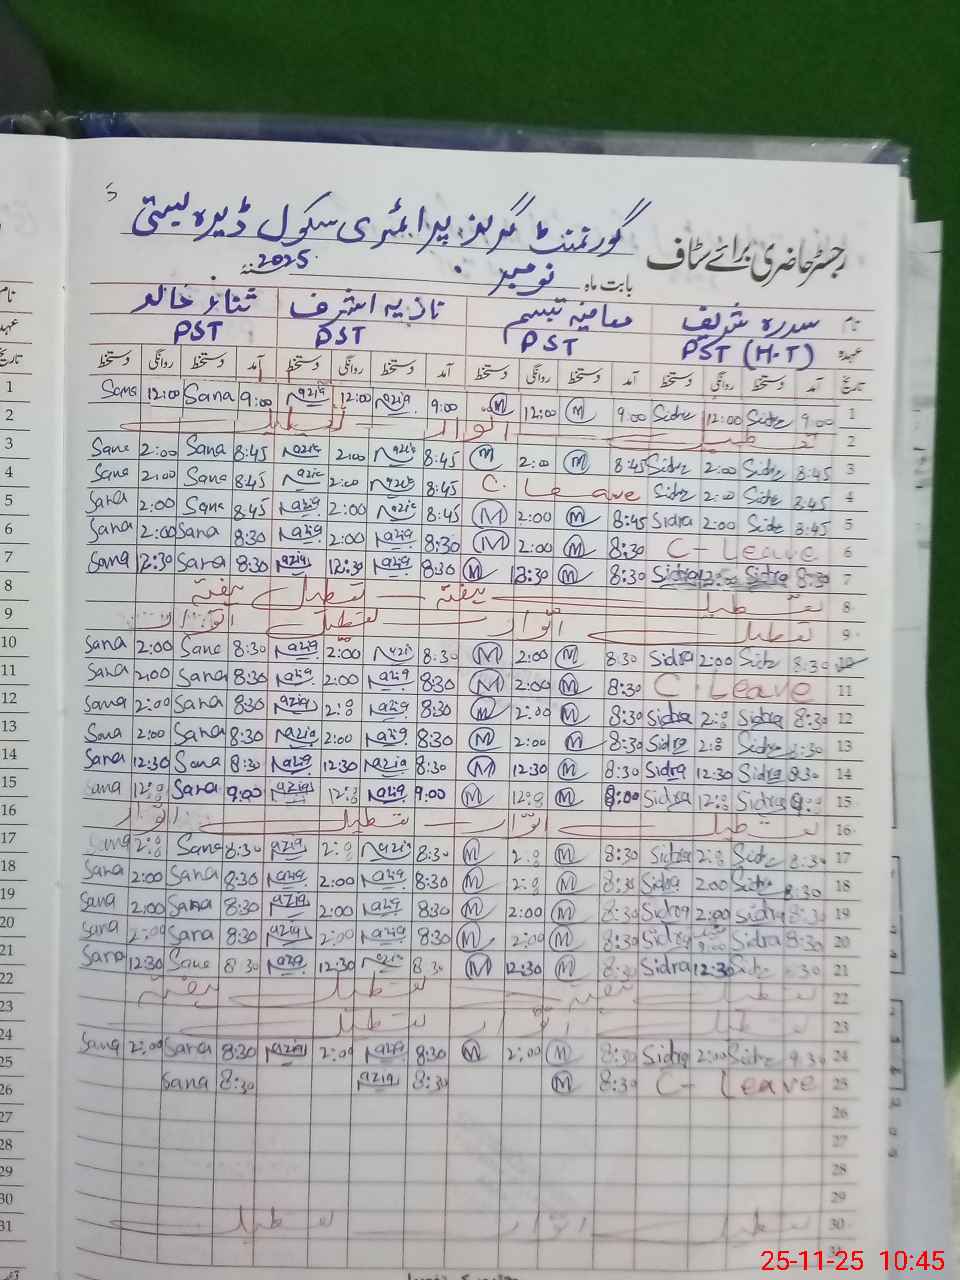 رجسٹر حاضری برائے سٹاف گورنمنٹ گرلز پرائمری سکول ڈیرہ بستی
بابت ماہ نومبر 2025
نام سدرہ شریف تبسم نازیہ اشرف ثناء خالد
عہدہ PST (H.T) PST PST PST
تاریخ آمد دستخط روانگی دستخط آمد دستخط روانگی دستخط آمد دستخط روانگی دستخط آمد دستخط روانگی دستخط
1 Sana 12:00 Sana 9:00 Nazia 12:00 Nazia 9:00 M 12:00 M 9:00 Sidra 12:00 Sidra 9:00 1
2 تعطیل اتوار تعطیل 2
3 Sana 2:00 Sana 8:45 Nazia 2:00 Nazia 8:45 M 2:00 M 8:45 Sidra 2:00 Sidra 8:45 3
4 Sana 2:00 Sana 8:45 Nazia 2:00 Nazia 8:45 C. Leave Sidra 2:00 Sidra 8:45 4
5 Sana 2:00 Sana 8:45 Nazia 2:00 Nazia 8:45 M 2:00 M 8:45 Sidra 2:00 Sidra 8:45 5
6 Sana 2:00 Sana 8:30 Nazia 2:00 Nazia 8:30 M 2:00 M 8:30 C-Leave 6
7 Sana 12:30 Sana 8:30 Nazia 12:30 Nazia 8:30 M 12:30 M 8:30 Sidra 12:30 Sidra 8:30 7
8 تعطیل ہفتہ تعطیل ہفتہ 8
9 تعطیل اتوار تعطیل اتوار 9
10 Sana 2:00 Sana 8:30 Nazia 2:00 Nazia 8:30 M 2:00 M 8:30 Sidra 2:00 Sidra 8:30 10
11 Sana 2:00 Sana 8:30 Nazia 2:00 Nazia 8:30 M 2:00 M 8:30 C-Leave 11
12 Sana 2:00 Sana 8:30 Nazia 2:00 Nazia 8:30 M 2:00 M 8:30 Sidra 2:00 Sidra 8:30 12
13 Sana 2:00 Sana 8:30 Nazia 2:00 Nazia 8:30 M 2:00 M 8:30 Sidra 2:00 Sidra 8:30 13
14 Sana 12:30 Sana 8:30 Nazia 12:30 Nazia 8:30 M 12:30 M 8:30 Sidra 12:30 Sidra 8:30 14
15 Sana 12:00 Sana 9:00 Nazia 12:00 Nazia 9:00 M 12:00 M 9:00 Sidra 12:00 Sidra 9:00 15
16 تعطیل اتوار تعطیل اتوار 16
17 Sana 2:00 Sana 8:30 Nazia 2:00 Nazia 8:30 M 2:00 M 8:30 Sidra 2:00 Sidra 8:30 17
18 Sana 2:00 Sana 8:30 Nazia 2:00 Nazia 8:30 M 2:00 M 8:30 Sidra 2:00 Sidra 8:30 18
19 Sana 2:00 Sana 8:30 Nazia 2:00 Nazia 8:30 M 2:00 M 8:30 Sidra 2:00 Sidra 8:30 19
20 Sana 2:00 Sana 8:30 Nazia 2:00 Nazia 8:30 M 2:00 M 8:30 Sidra Sidra 8:30 20
21 Sana 12:30 Sana 8:30 Nazia 12:30 Nazia 8:30 M 12:30 M 8:30 Sidra 12:30 Sidra 8:30 21
22 تعطیل ہفتہ تعطیل ہفتہ 22
23 تعطیل اتوار تعطیل 23
24 Sana 2:00 Sana 8:30 Nazia 2:00 Nazia 8:30 M 2:00 M 8:30 Sidra 2:00 Sidra 8:30 24
25 Sana 8:30 Nazia 8:30 M 8:30 C-Leave 25
26 26
27 27
28 28
29 29
30 تعطیل اتوار تعطیل 30
31 31
25-11-25 10:45